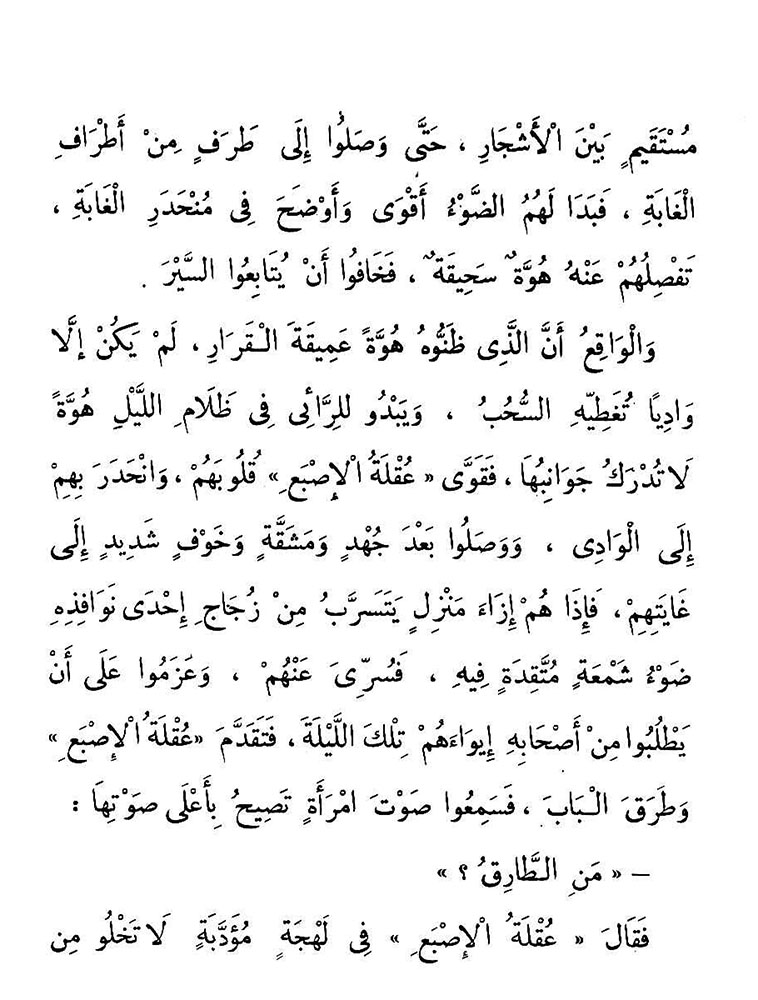 مُسْتَقَيمٍ بَيْنَ الْأَشْجَارِ ، حَتَّى وَصَلُوا إِلَى طَرَفٍ مِنْ أَطْرَافِ
الْغَابَةِ ، فَبَدَا لَهُمُ الضَّوْءُ أَقْوَى وَأَوْضَحَ فِى مُنْحَدَرِ الْغَابَةِ ،
تَفْصِلُهُمْ عَنْهُ هُوَّةٌ سَحِيقَةٌ ، فَخَافُوا أَنْ يُتَابِعُوا السَّيْرَ .
وَالْوَاقِعُ أَنَّ الَّذِى ظَنُّوهُ هُوَّةً عَمِيقَةَ الْقَرَارِ ، لَمْ يَكُنْ إِلَّا
وَادِيًا تُغَطِّيهِ السُّحُبُ ، وَيَبْدُو لِلرَّائِى فِى ظَلَامِ اللَّيْلِ هُوَّةً
لَا تُدْرَكُ جَوَانِبُهَا ، فَقَوَّى « عُقْلَةُ الْإِصْبَعِ » قُلُوبَهُمْ ، وَانْحَدَرَ بِهِمْ
إِلَى الْوَادِى ، وَوَصَلُوا بَعْدَ جُهْدٍ وَمَشَقَّةٍ وَخَوْفٍ شَدِيدٍ إِلَى
غَايَتِهِمْ ، فَإِذَا هُمْ إِزَاءَ مَنْزِلٍ يَتَسَرَّبُ مِنْ زُجَاجِ إِحْدَى نَوَافِذِهِ
ضَوْءُ شَمْعَةٍ مُتَّقِدَةٍ فِيهِ ، فَسُرِّىَ عَنْهُمْ ، وَعَزَمُوا عَلَى أَنْ
يَطْلُبُوا مِنْ أَصْحَابِهِ إِيوَاءَهُمْ تِلْكَ اللَّيْلَةَ ، فَتَقَدَّمَ «عُقْلَةُ الْإِصْبَعِ »
وَطَرَقَ الْبَابَ ، فَسَمِعُوا صَوْتَ امْرَأَةٍ تَصِيحُ بِأَعْلَى صَوْتِهَا :
— « مَنِ الطَّارِقُ ؟ »
فَقَالَ « عُقْلَةُ الْإِصْبَعِ » فِى لَهْجَةٍ مُؤَدَّبَةٍ لَا تَخْلُو مِن